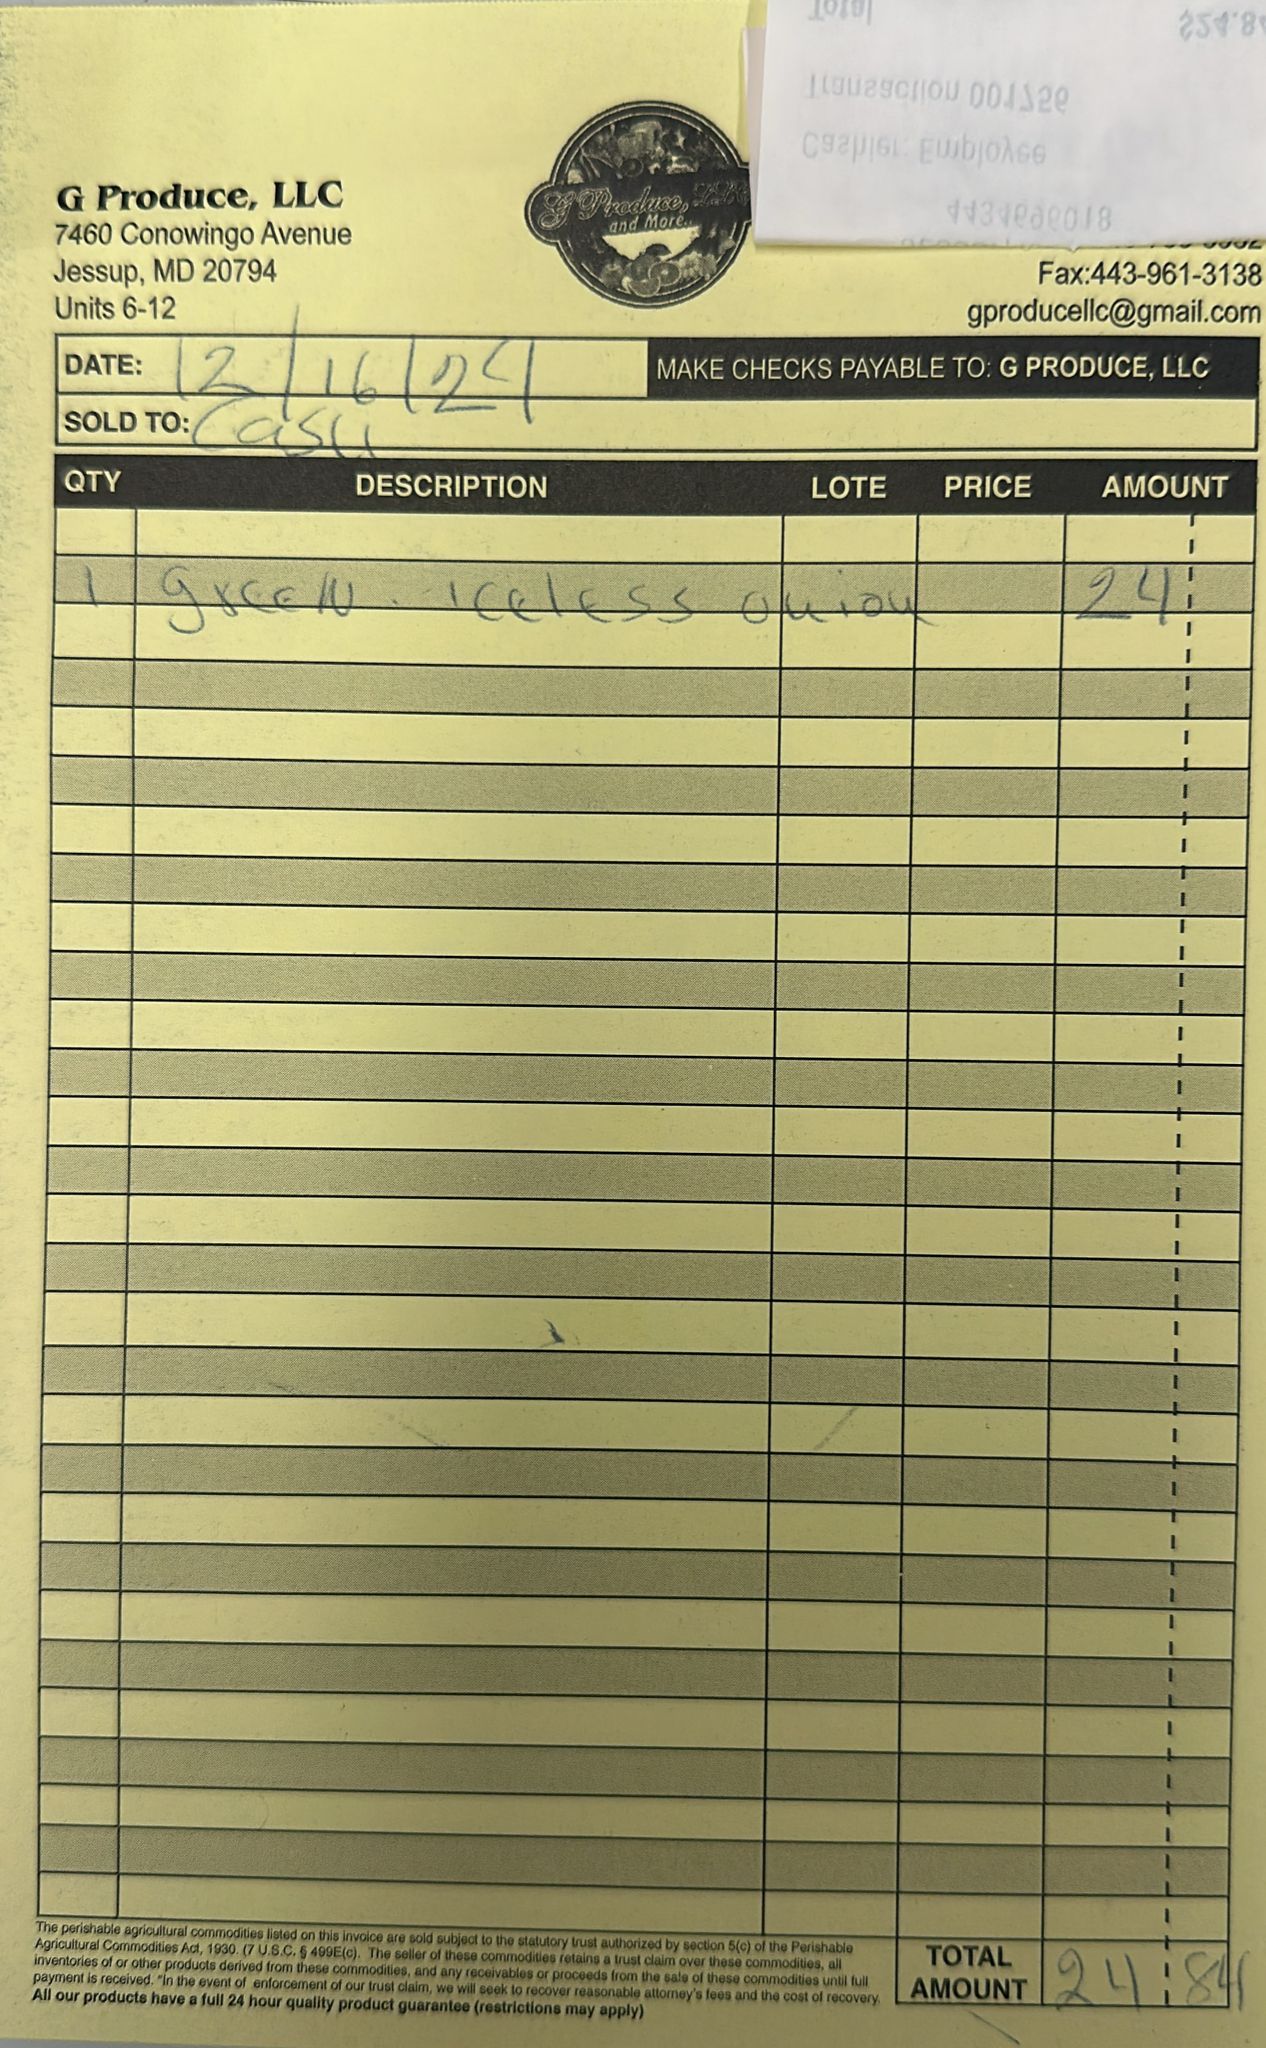 Total $24.84
Transaction 001756
Cashier: Employee
4434696018
G Produce, LLC
7460 Conowingo Avenue
Jessup, MD 20794
Units 6-12
G Produce, LLC
and More..
Fax:443-961-3138
gproducellc@gmail.com
DATE: 12/16/24
MAKE CHECKS PAYABLE TO: G PRODUCE, LLC
SOLD TO: Cash
QTY DESCRIPTION LOTE PRICE AMOUNT
1 green . iceless onion 24
The perishable agricultural commodities listed on this invoice are sold subject to the statutory trust authorized by section 5(c) of the Perishable
Agricultural Commodities Act, 1930. (7 U.S.C. § 499E(c). The seller of these commodities retains a trust claim over these commodities, all
inventories of or other products derived from these commodities, and any receivables or proceeds from the sale of these commodities until full
payment is received. "In the event of enforcement of our trust claim, we will seek to recover reasonable attorney's fees and the cost of recovery.
All our products have a full 24 hour quality product guarantee (restrictions may apply)
TOTAL
AMOUNT 24 84